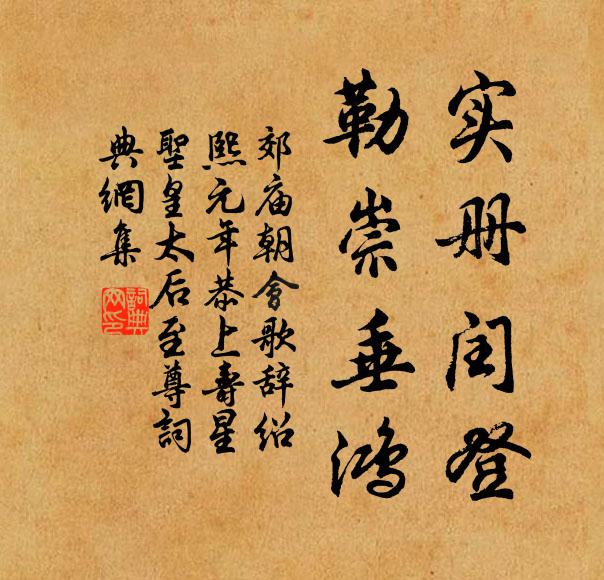 实册闰登
勒崇垂鸿
郊庙朝会歌辞绍
熙元年恭上寿星
聖皇太后至尊詞
典網集
詞典網印